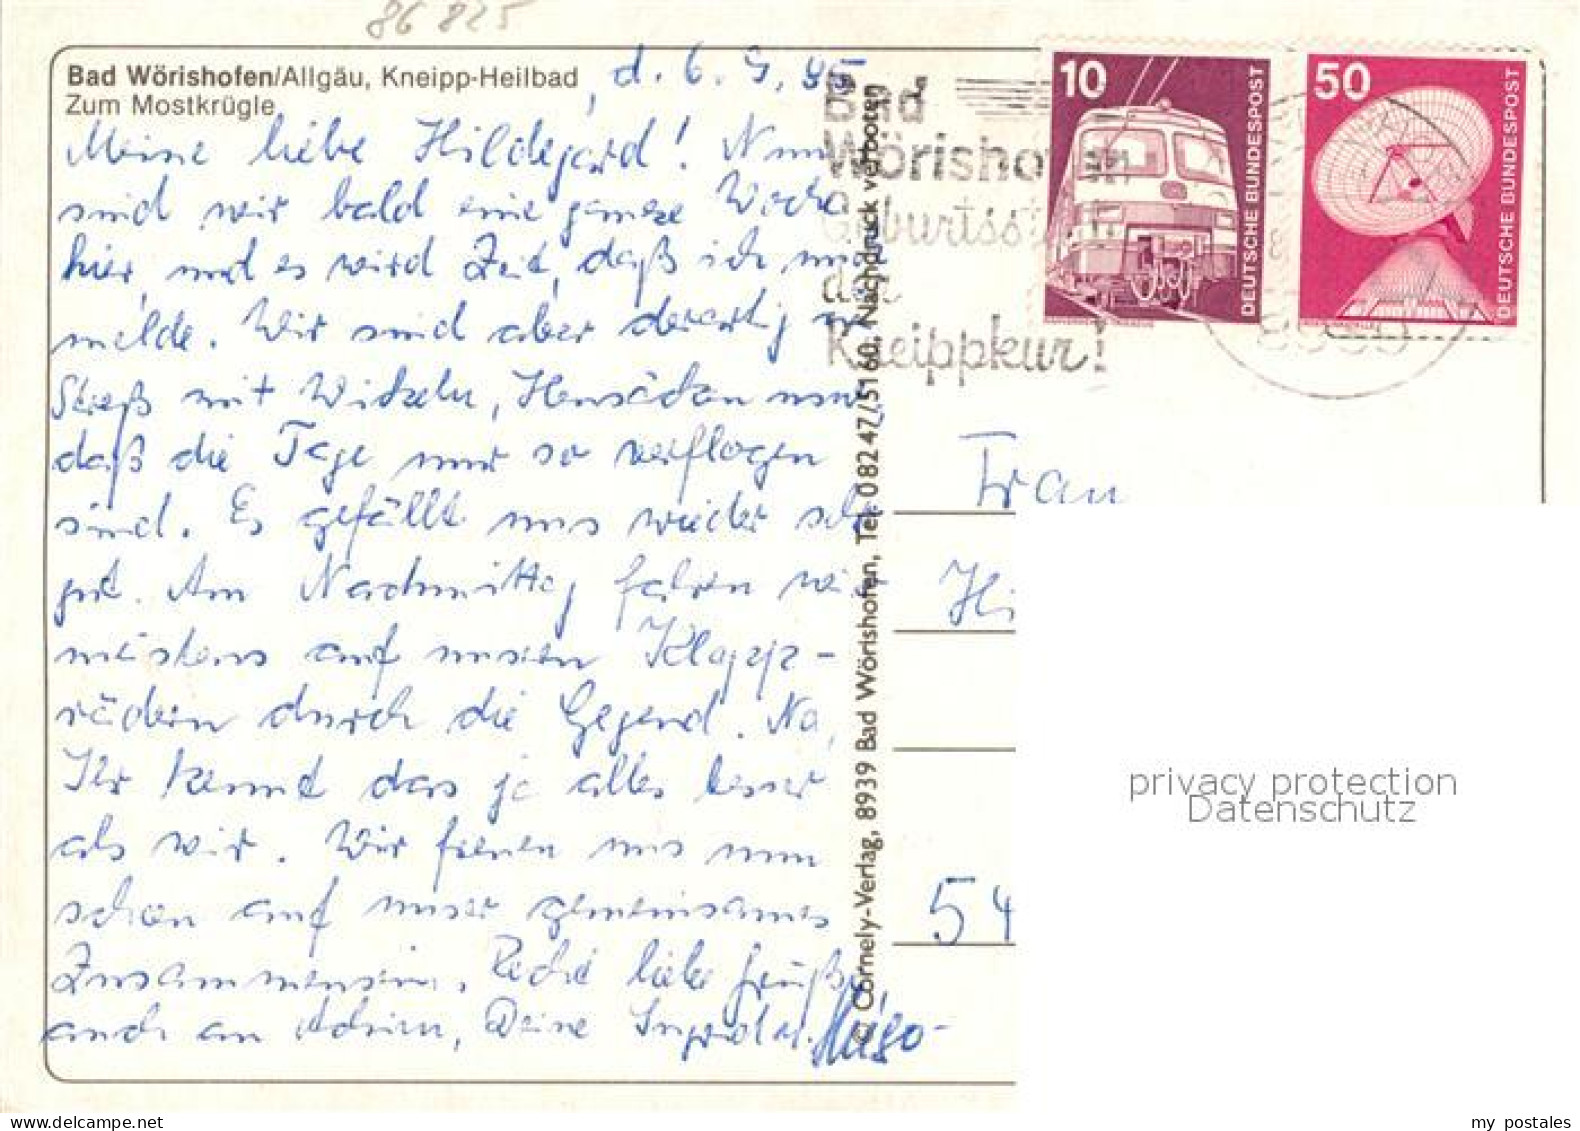 86 825
Bad Wörishofen/Allgäu, Kneipp-Heilbad
Zum Mostkrügle
d. 6. 9. 85
Meine liebe Hildegard! Nun
sind wir bald eine ganze Woche
hier, und es wird Zeit, daß ich mich
melde. Wir sind aber derartig im
Streß mit Wickeln, Heusäcken usw,
daß die Tage nur so verflogen
sind. Es gefällt uns wieder sehr
gut. Am Nachmittag fahren wir
meistens auf unseren Klapp-
rädern durch die Gegend. Na,
Ihr kennt das ja alles besser
als wir. Wir freuen uns nun
schon auf unser gemeinsames
Zusammensein. Recht liebe Grüße,
auch an Achim, Deine Ingrid u. Hugo-
© Cornely-Verlag, 8939 Bad Wörishofen, Tel. 08247/5160, Nachdruck verboten
Bad
Wörishofen
Geburtsstadt
der
Kneippkur!
10
DEUTSCHE BUNDESPOST
50
DEUTSCHE BUNDESPOST
Frau
Hi
54
privacy protection
Datenschutz
my postales